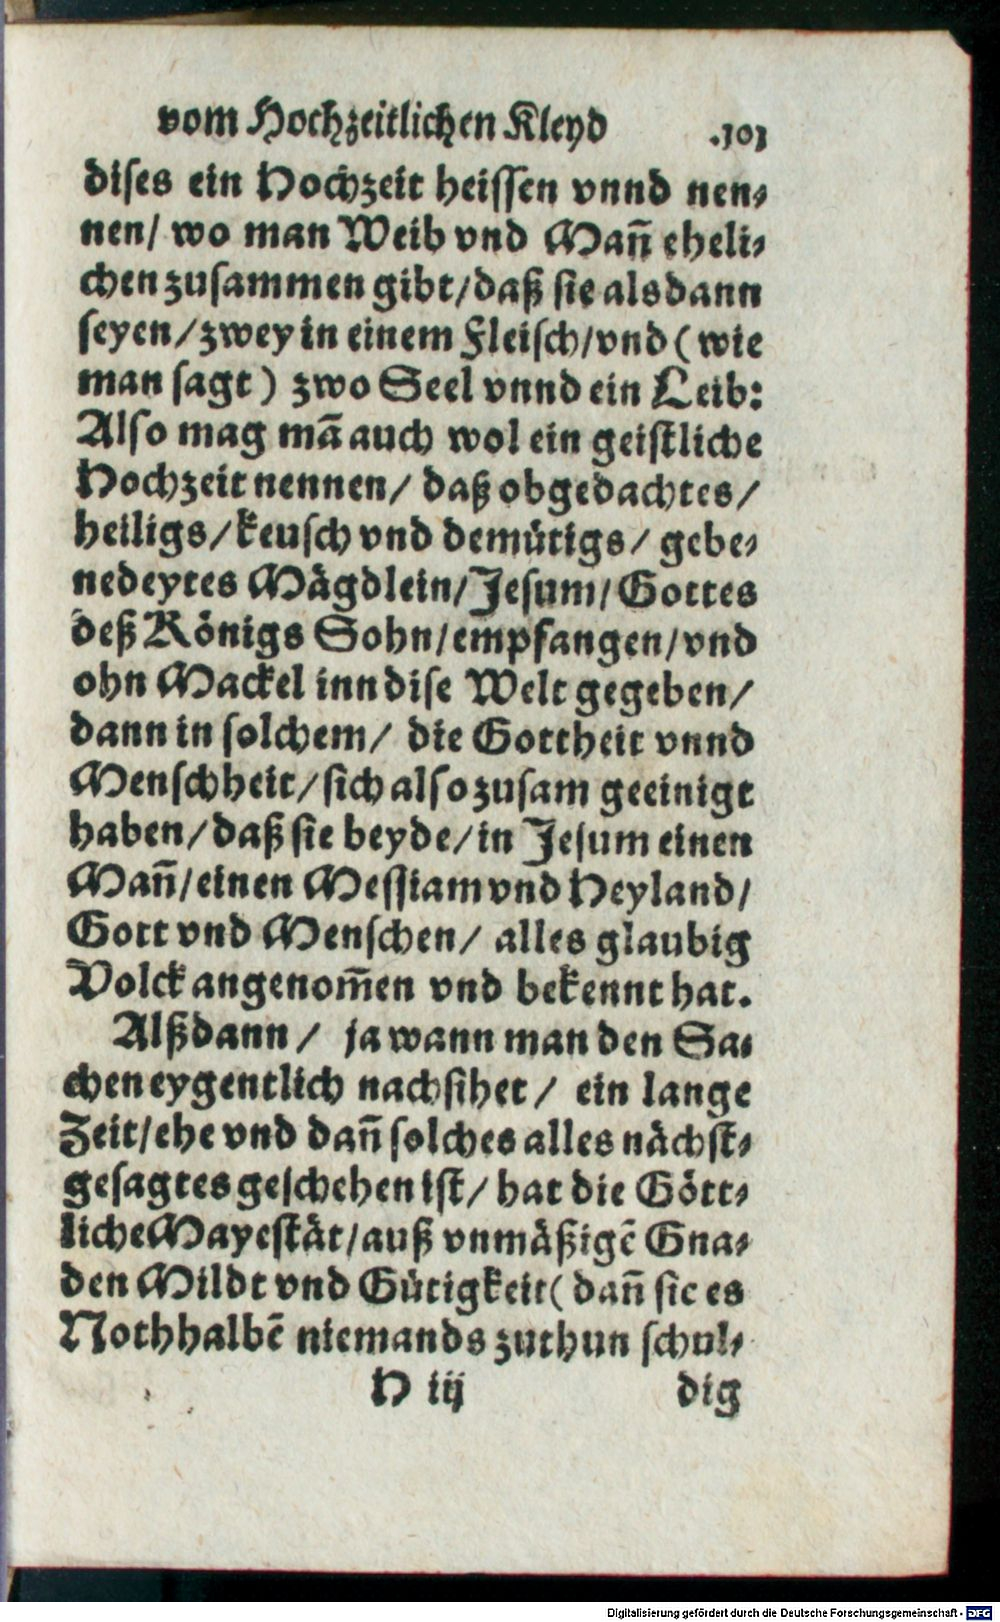 vom Hochzeitlichen Kleyd .103
dises ein Hochzeit heissen vnnd nen⸗
nen/ wo man Weib vnd Mañ eheli⸗
chen zusammen gibt/daß sie alsdann
seyen/zwey in einem Fleisch/vnd (wie
man sagt) zwo Seel vnnd ein Leib:
Also mag mā auch wol ein geistliche
Hochzeit nennen/ daß obgedachtes/
heiligs/keusch vnd demütigs/ gebe⸗
nedeytes Mägdlein/Jesum/Gottes
deß Königs Sohn/empfangen/vnd
ohn Mackel inn dise Welt gegeben/
dann in solchem/ die Gottheit vnnd
Menschheit/sich also zusam geeinigt
haben/daß sie beyde/in Jesum einen
Mañ/einen Messiam vnd Heyland/
Gott vnd Menschen/ alles glaubig
Volck angenom̃en vnd bekennt hat.
Alßdann/ ja wann man den Sa⸗
chen eygentlich nachsihet/ ein lange
Zeit/ehe vnd dañ solches alles nächst⸗
gesagtes geschehen ist/ hat die Gött⸗
liche Mayestät/auß vnmäßigē Gna⸗
den Mildt vnd Gütigkeit( dañ sie es
Nothhalbē niemands zuthun schul⸗
H iij dig
Digitalisierung gefördert durch die Deutsche Forschungsgemeinschaft - DFG